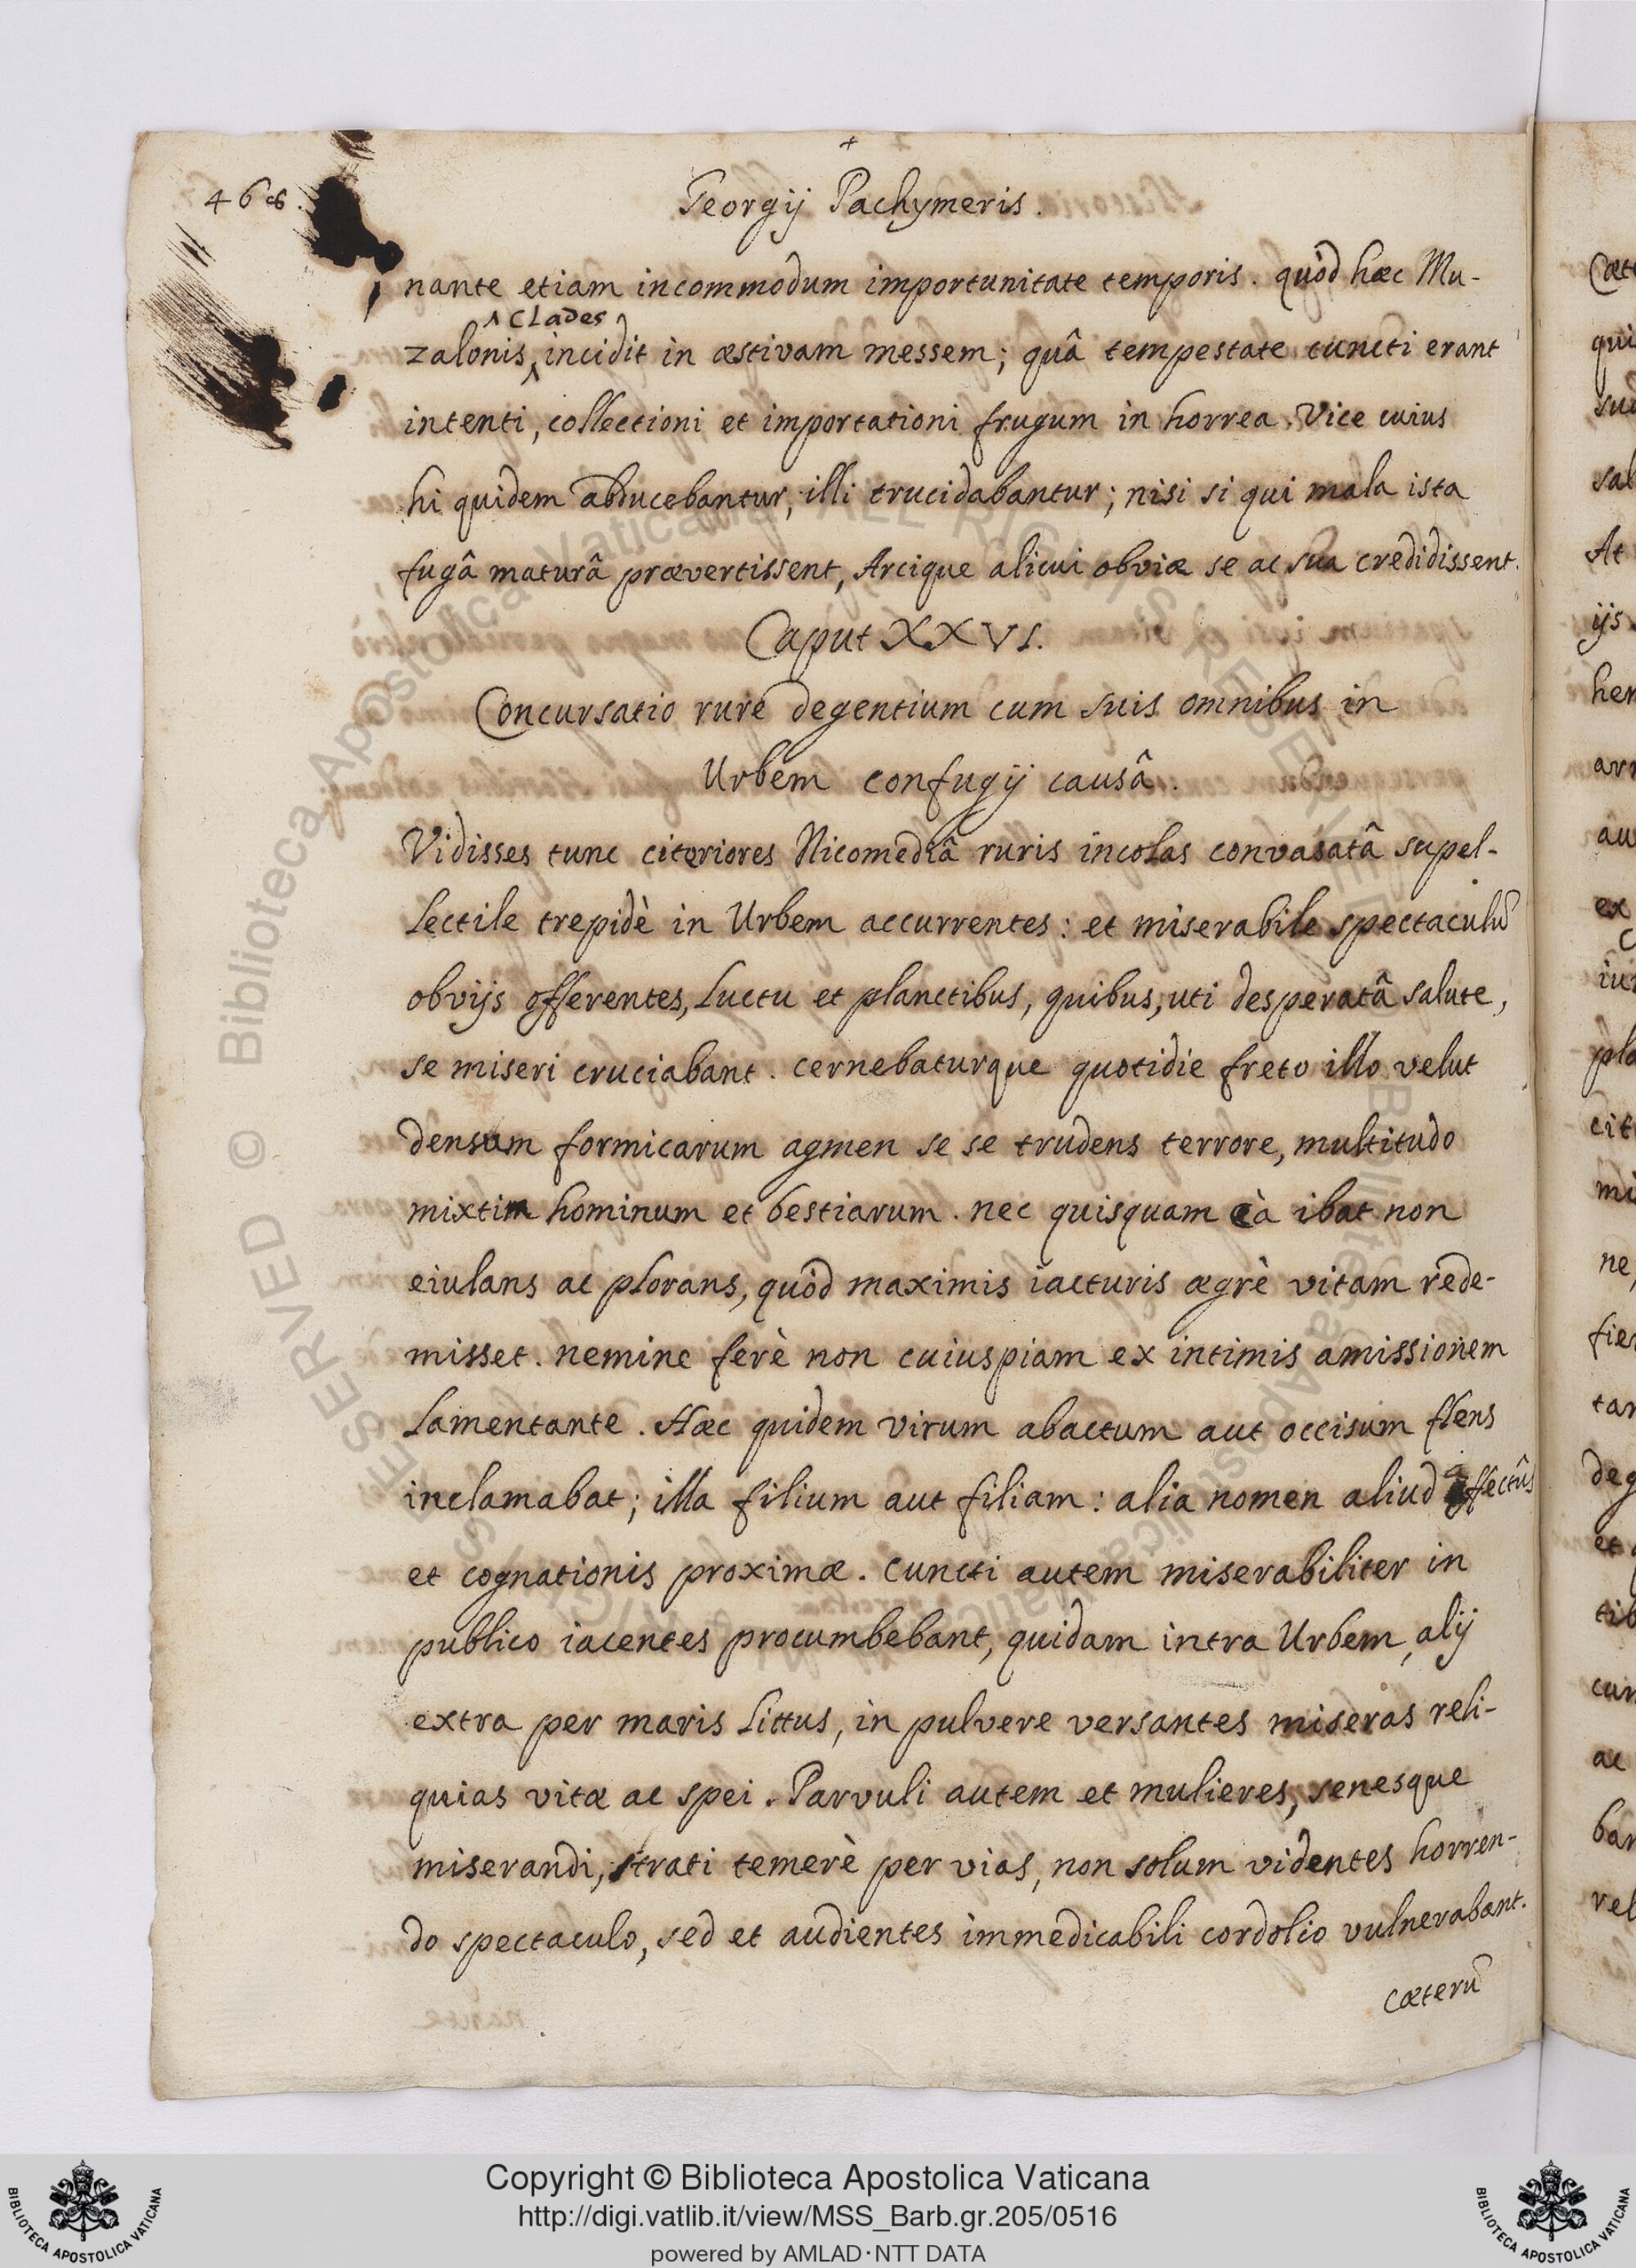 +
468.
Georgij Pachymeris.
nante etiam incommodum importunitate temporis. quòd hæc Mu-
clades
zalonis incidit in æstivam messem; quâ tempestate cuncti erant
intenti, collectioni et importationi frugum in horrea. Vice cuius
hi quidem abducebantur, illi trucidabantur; nisi si qui mala ista
fugâ maturâ prævertissent, Arcique alicui obviæ se ac sua credidissent.
Caput XXVI.
Concursatio rure degentium cum suis omnibus in
Urbem confugij causâ.
Vidisses tunc citeriores Nicomediâ ruris incolas convasatâ supel-
lectile trepidè in Urbem accurrentes: et miserabile spectaculū
obvijs offerentes, luctu et planctibus, quibus, uti desperatâ salute,
se miseri cruciabant. cernebaturque quotidie freto illo velut
densum formicarum agmen se se trudens terrore, multitudo
mixtim hominum et bestiarum. nec quisquam eà ibat non
eiulans ac plorans, quòd maximis iacturis ægrè vitam rede-
misset. nemine ferè non cuiuspiam ex intimis amissionem
lamentante. Hæc quidem virum abactum aut occisum flens
inclamabat; illa filium aut filiam: alia nomen aliud affectûs
et cognationis proximæ. cuncti autem miserabiliter in
publico iacentes procumbebant, quidam intra Urbem, alij
extra per maris littus, in pulvere versantes miseras reli-
quias vitæ ac spei. Parvuli autem et mulieres, senesque
miserandi, strati temerè per vias, non solum videntes horren-
do spectaculo, sed et audientes immedicabili cordolio vulnerabant.
cæterū
Copyright © Biblioteca Apostolica Vaticana
http://digi.vatlib.it/view/MSS_Barb.gr.205/0516
powered by AMLAD·NTT DATA
BIBLIOTECA APOSTOLICA VATICANA
BIBLIOTECA APOSTOLICA VATICANA